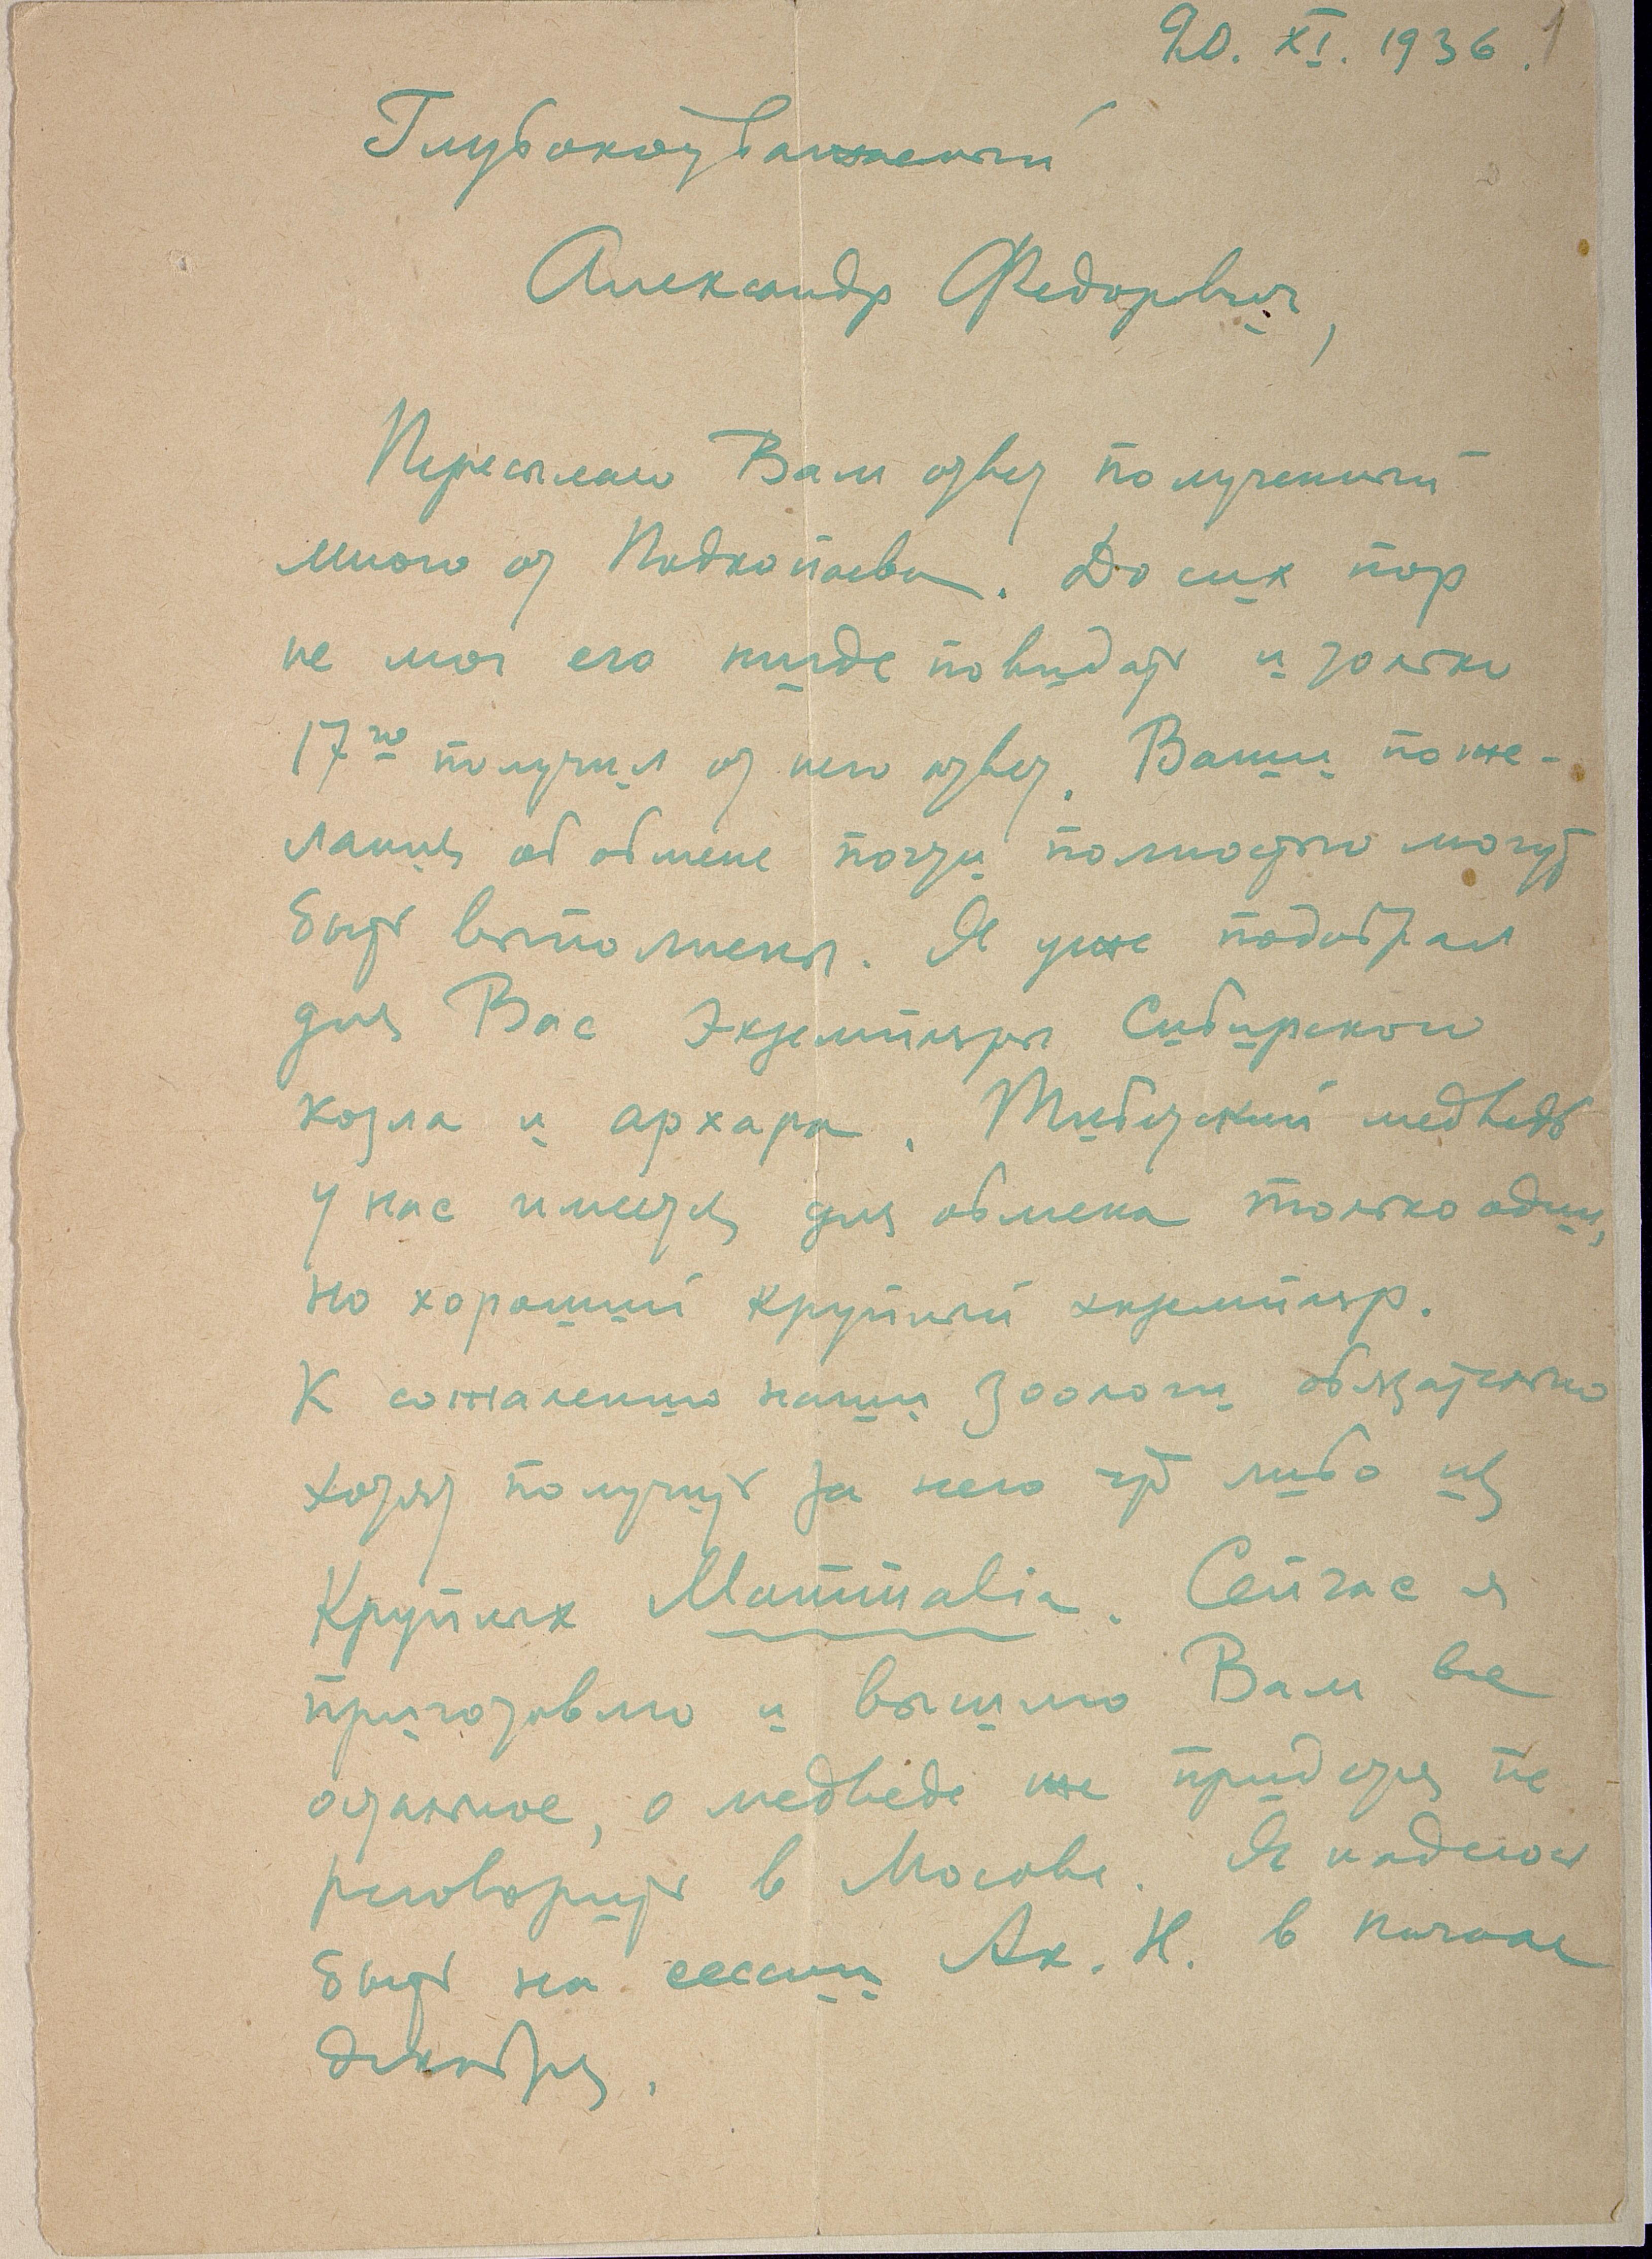 20. XI. 1936. 1
Глубокоуважаемый
Александр Федорович,
Пересылаю Вам ответ полученный
мною от Подкопаева. До сих пор
не мог его нигде повидать и только
17го получил от него ответ. Ваши поже-
лания об обмене почти полностью могут
быть выполнены. Я уже подобрал
для Вас экземпляры Сибирского
козла и архара. Тибетский медведь
у нас имеется для обмена только один,
но хороший крупный экземпляр.
К сожалению наши зоологи обязательно
хотят получить за него что либо из
крупных Mammalia. Сейчас я
приготовлю и вышлю Вам все
остальное, о медведе же придется пе
реговорить в Москве. Я надеюсь
быть на сессии Ак. Н. в начале
декабря.